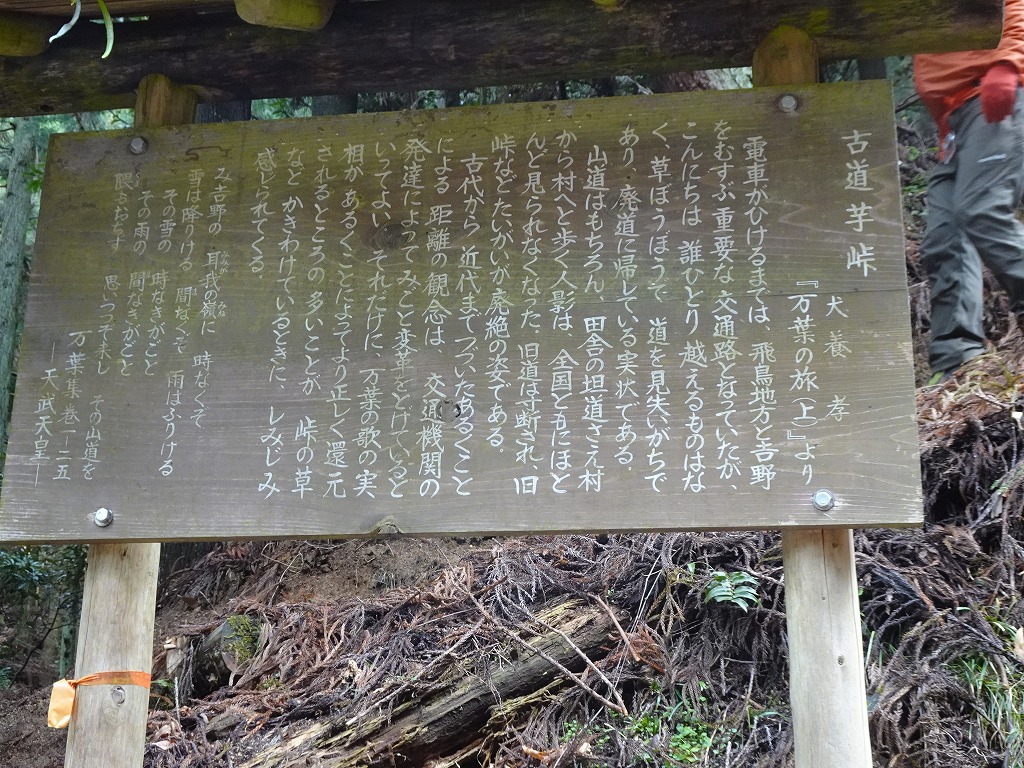 古道芋峠
犬養 孝
『万葉の旅(上)』より
電車がひけるまでは、飛鳥地方と吉野
をむすぶ重要な交通路となっていたが、
こんにちは 誰ひとり越えるものはな
く、草ぼうぼうて 道を見失いがちで
あり、廃道に帰している実状である。
山道はもちろん、田舎の坦道さえ村
から村へと歩く人影は、全国ともにほと
んど見られなくなった。旧道は寸断され、旧
峠などたいがいが廃絶の姿である。
古代から 近代までつづいたあるくこと
による 距離の観念は、 交通機関の
発達によってみごと変革をとげていると
いってよい。それだけに、万葉の歌の実
相が あるくことによってより正しく還元
されるところの多いことが 峠の草
など かきわけているときに、しみじみ
感じられてくる。
み吉野の 耳我の嶺に 時なくそ
雪は降りける 間なくそ 雨はふりける
その雪の 時なきがごと
その雨の 間なきがごと
隈もおちす 思いつつそ来し その山道を
万葉集巻一―二五
―天武天皇―